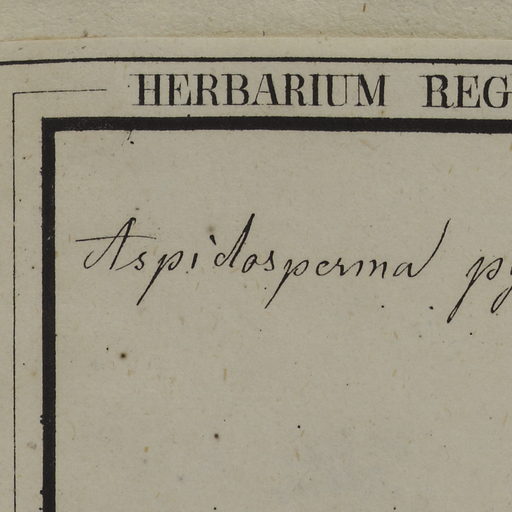 HERBARIUM REG
Aspidosperma py